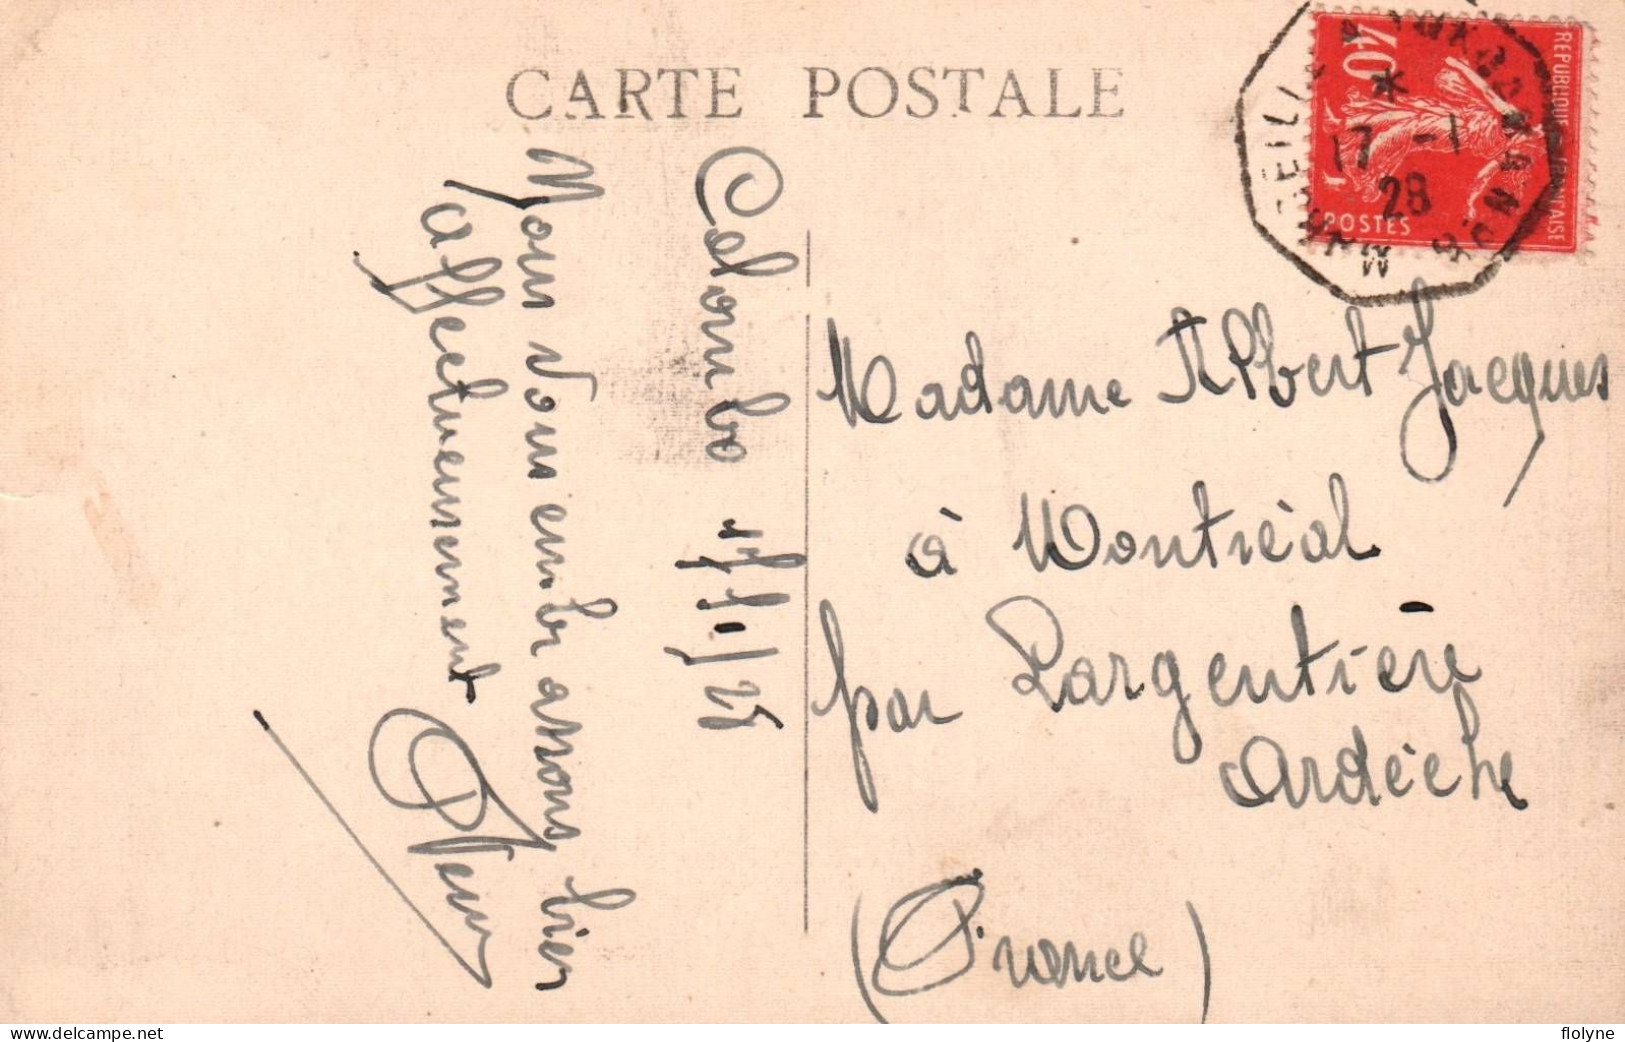 CARTE POSTALE
REPUBLIQUE FRANÇAISE
40c
POSTES
17 -1
28
Colombo 17/1/28
Nous vous embrassons bien
affectueusement
Madame Albert Jacques
à Montréal
par Largentière
Ardèche
(France)
flolyne